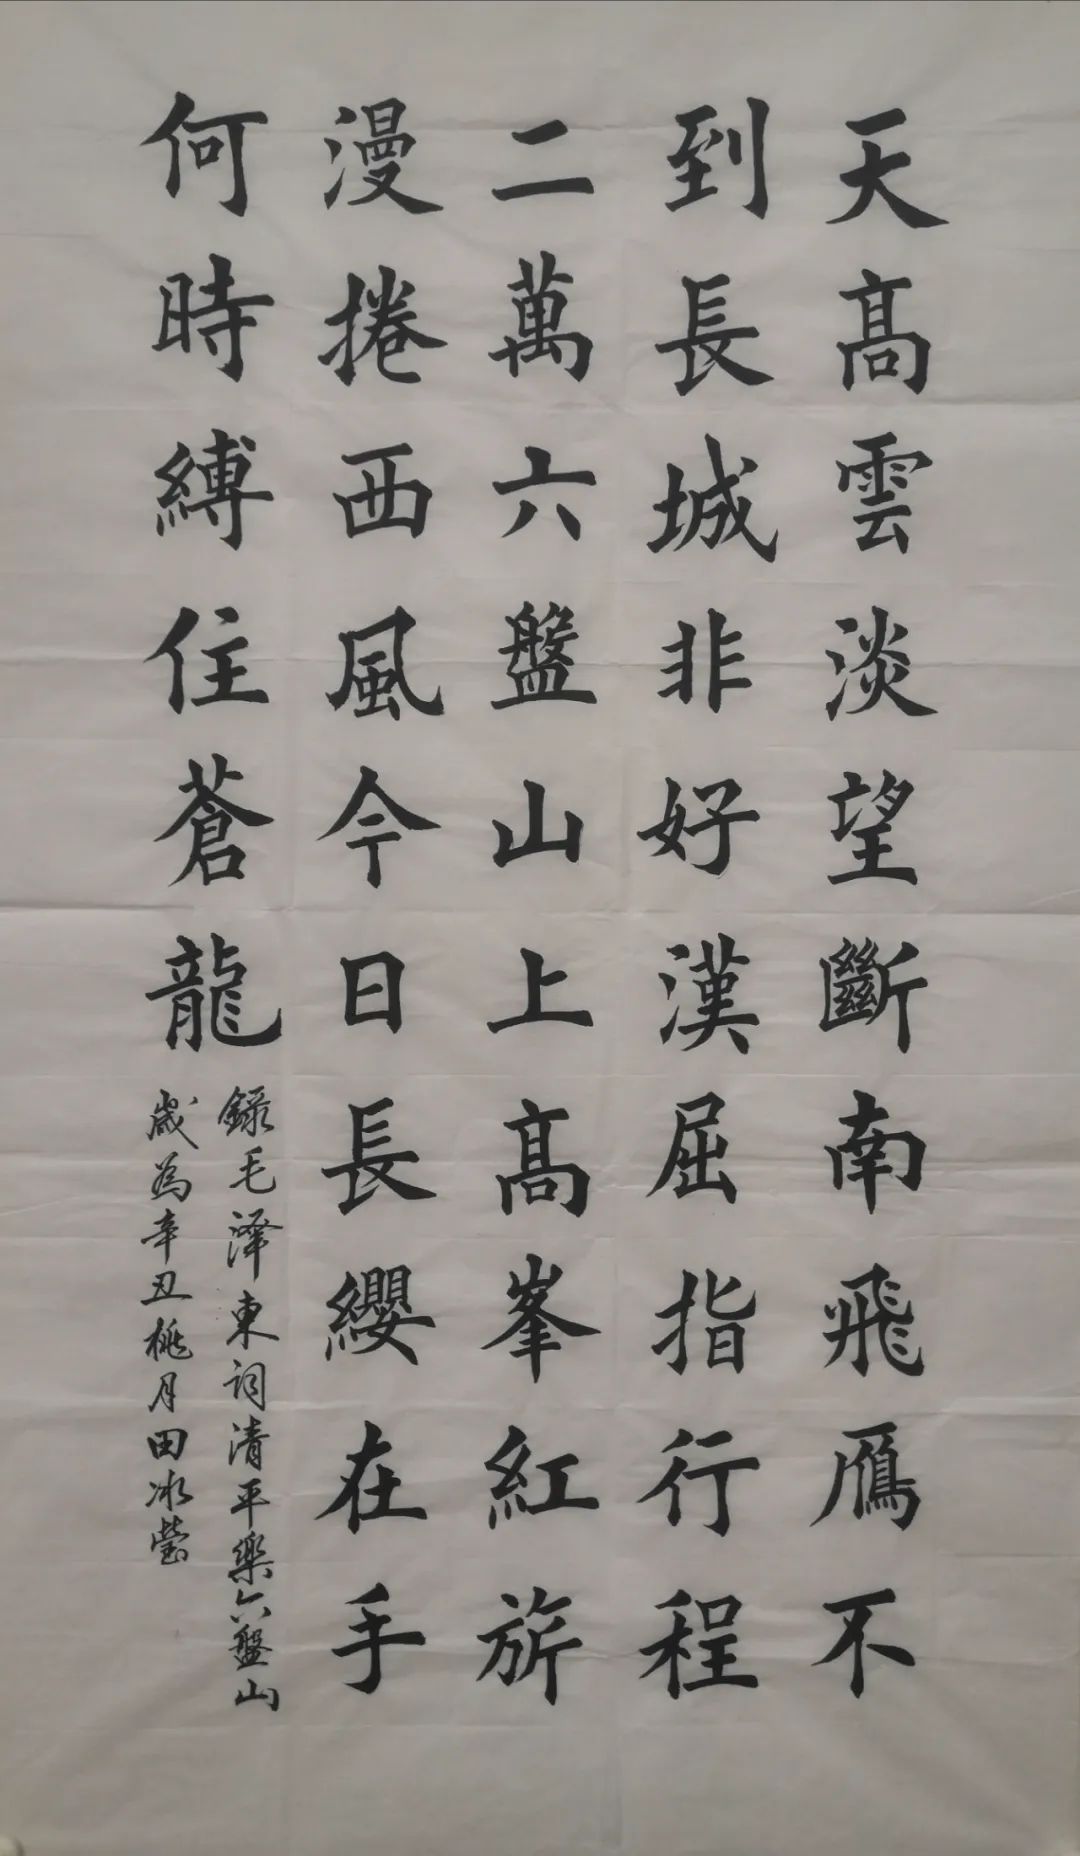 天髙雲淡望斷南飛鴈不
到長城非好漢屈指行程
二萬六盤山上髙峯紅旂
漫捲西風今日長纓在手
何時縛住蒼龍
錄毛澤東詞清平樂六盤山
歲為辛丑桃月田冰瑩